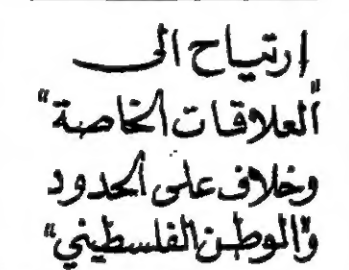 إرتياح الى
"العلاقات الخاصة"
وخلاف على الحدود
و"الوطن الفلسطيني"